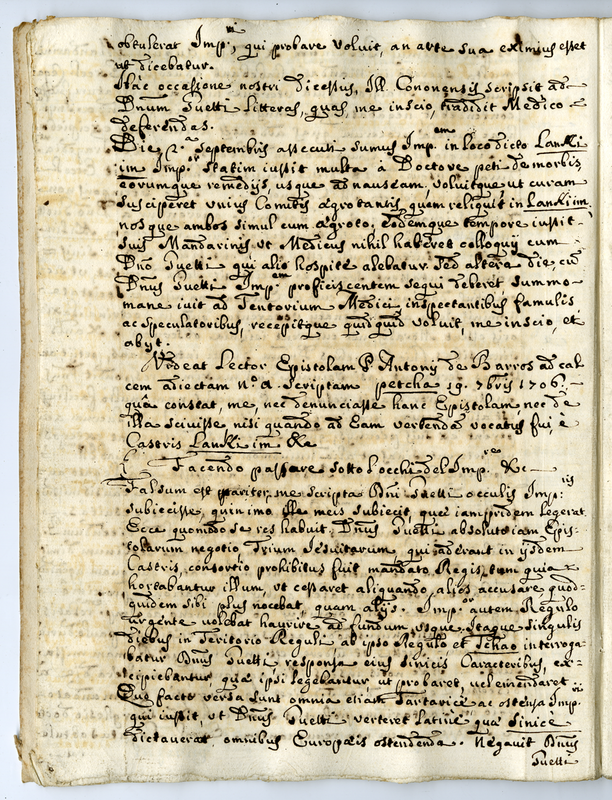 obtulerat Imp.ri, qui probare voluit, an arte sua eximius esset
ut dicebatur.
Hac occasione nostri dicessus, Ill. Cononensis scripsit ad
Dnum Guetti litteras, quas, me inscio, tradidit Medico
deferendas.
Die 2.a Septembris assecuti sumus Imp.em in loco dicto Lanki
im Imp.r statim iussit multa à Doctore peti de morbis,
eorumque remedijs, usque ad nauseam, voluitque, ut curam
susciperet unius Comitis aegrotantis, quem reliquit in Lanki im
nosque ambos simul cum aegroto. eodemque tempore iussit
suis Mandarinis ut Medicus nihil haberet colloquij cum
Dno Guetti qui alio hospite alebatur. Sed altera die, cum
Dnus Guetti Imp.em proficiscentem sequi deberet, summo
mane ivit ad Tentorium Medici, inspectantibus famulis,
ac speculatoribus, recepitque quidquid voluit, me inscio, et
abijt.
Videat Lector Epistolam P. Antonij de Barros ad cal
cem adiectam N.o a. scriptam petcha 19. 7bris 1706.
quâ constat, me, nec denunciasse hanc Epistolam, nec de
illa scivisse, nisi quando ad Eam vertendam vocatus fui, è
Castris Lanki im &c
Facendo passare sotto l occhi del Imp.re &c
Falsum est pariter, me scripta Dni Guetti oculis Imp.ris
subiecisse, quin imo ille meis subiecit, quae iampridem legerat.
Ecce quomodo se res habuit. Dnus Guetti absoluto iam Epis-
tolarum negotio, Trium Iesuitarum, qui aderant in ijsdem
Castris, consortio prohibitus fuit mandato Regis, tum quia
hortabantur illum, ut cessaret aliquando alios accusare quod
quidem sibi plus nocebat, quam alijs. Imp.or autem Regulo
urgente volebat haurire ad fundum usque. Itaque singulis
diebus in Teritorio Reguli ab ipso Regulo et Tchao interroga-
batur Dnus Guetti, responsa eius sinicis Caracteribus, ex-
cipiebantur, quae ipsi legebantur, ut probaret, vel emendaret.
Quo facto versa sunt omnia etiam Tartaricè ac ostensa Imp.ri
qui iussit, ut Dnus Guetti verteret Latinè quae Sinicè
dictaverat omnibus Europaeis ostendenda. Negavit Dnus
Guetti